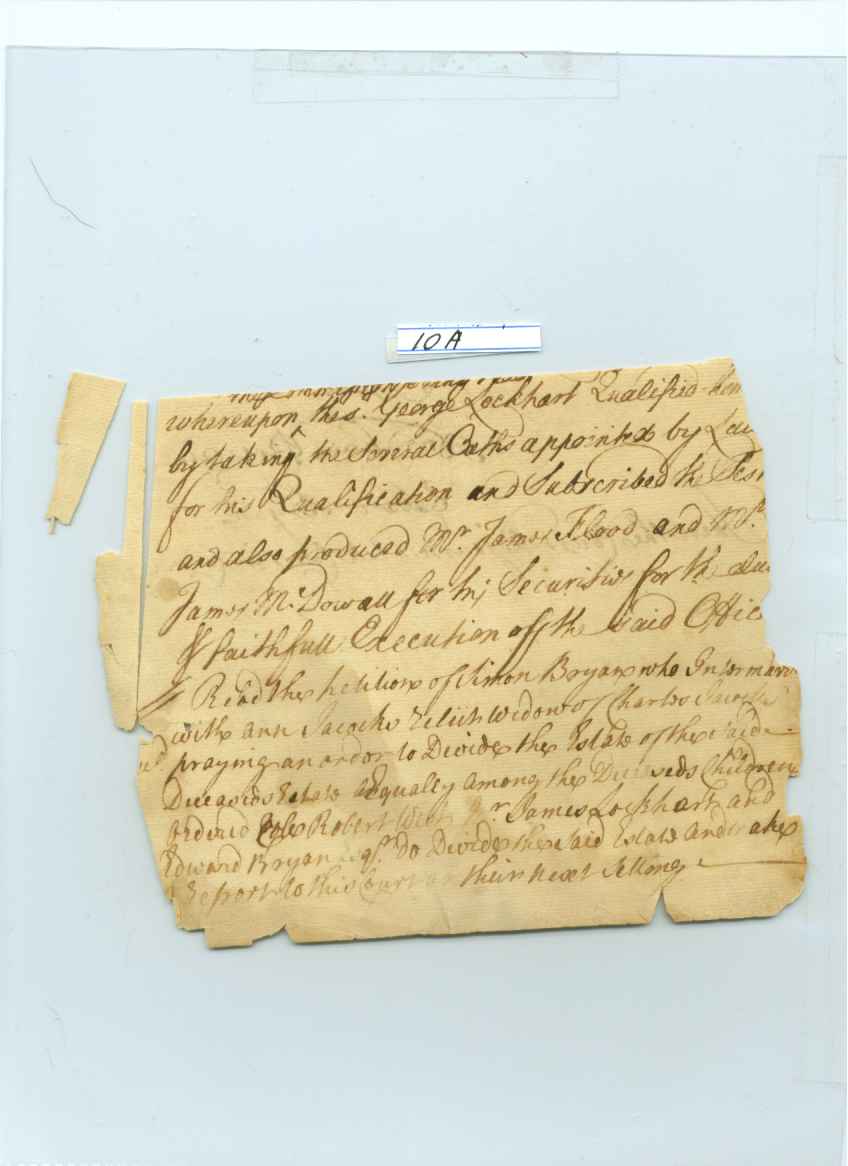 10A
whereupon the s. George Lockhart Qualified
by taking the Several Oaths appointed by Law
for his Qualification and Subscribed the Test
and also produced Mr. James Flood and Mr.
James McDowall for his Securities for the due
& faithfull Execution off the Said Offic
Read the petition of Simon Bryan who Intermarr
with ann Jacocks Relict & Widow of Charles Jacocks
praying an order to Divide the Estate of the Said
Deceaseds Estate Equally among the Deceaseds Children
ordered Colo Robert West Mr. James Lockhart and
Edward Bryan Esqr. Do Divide the Said Estate and make
Report to this Court at their next Sitting